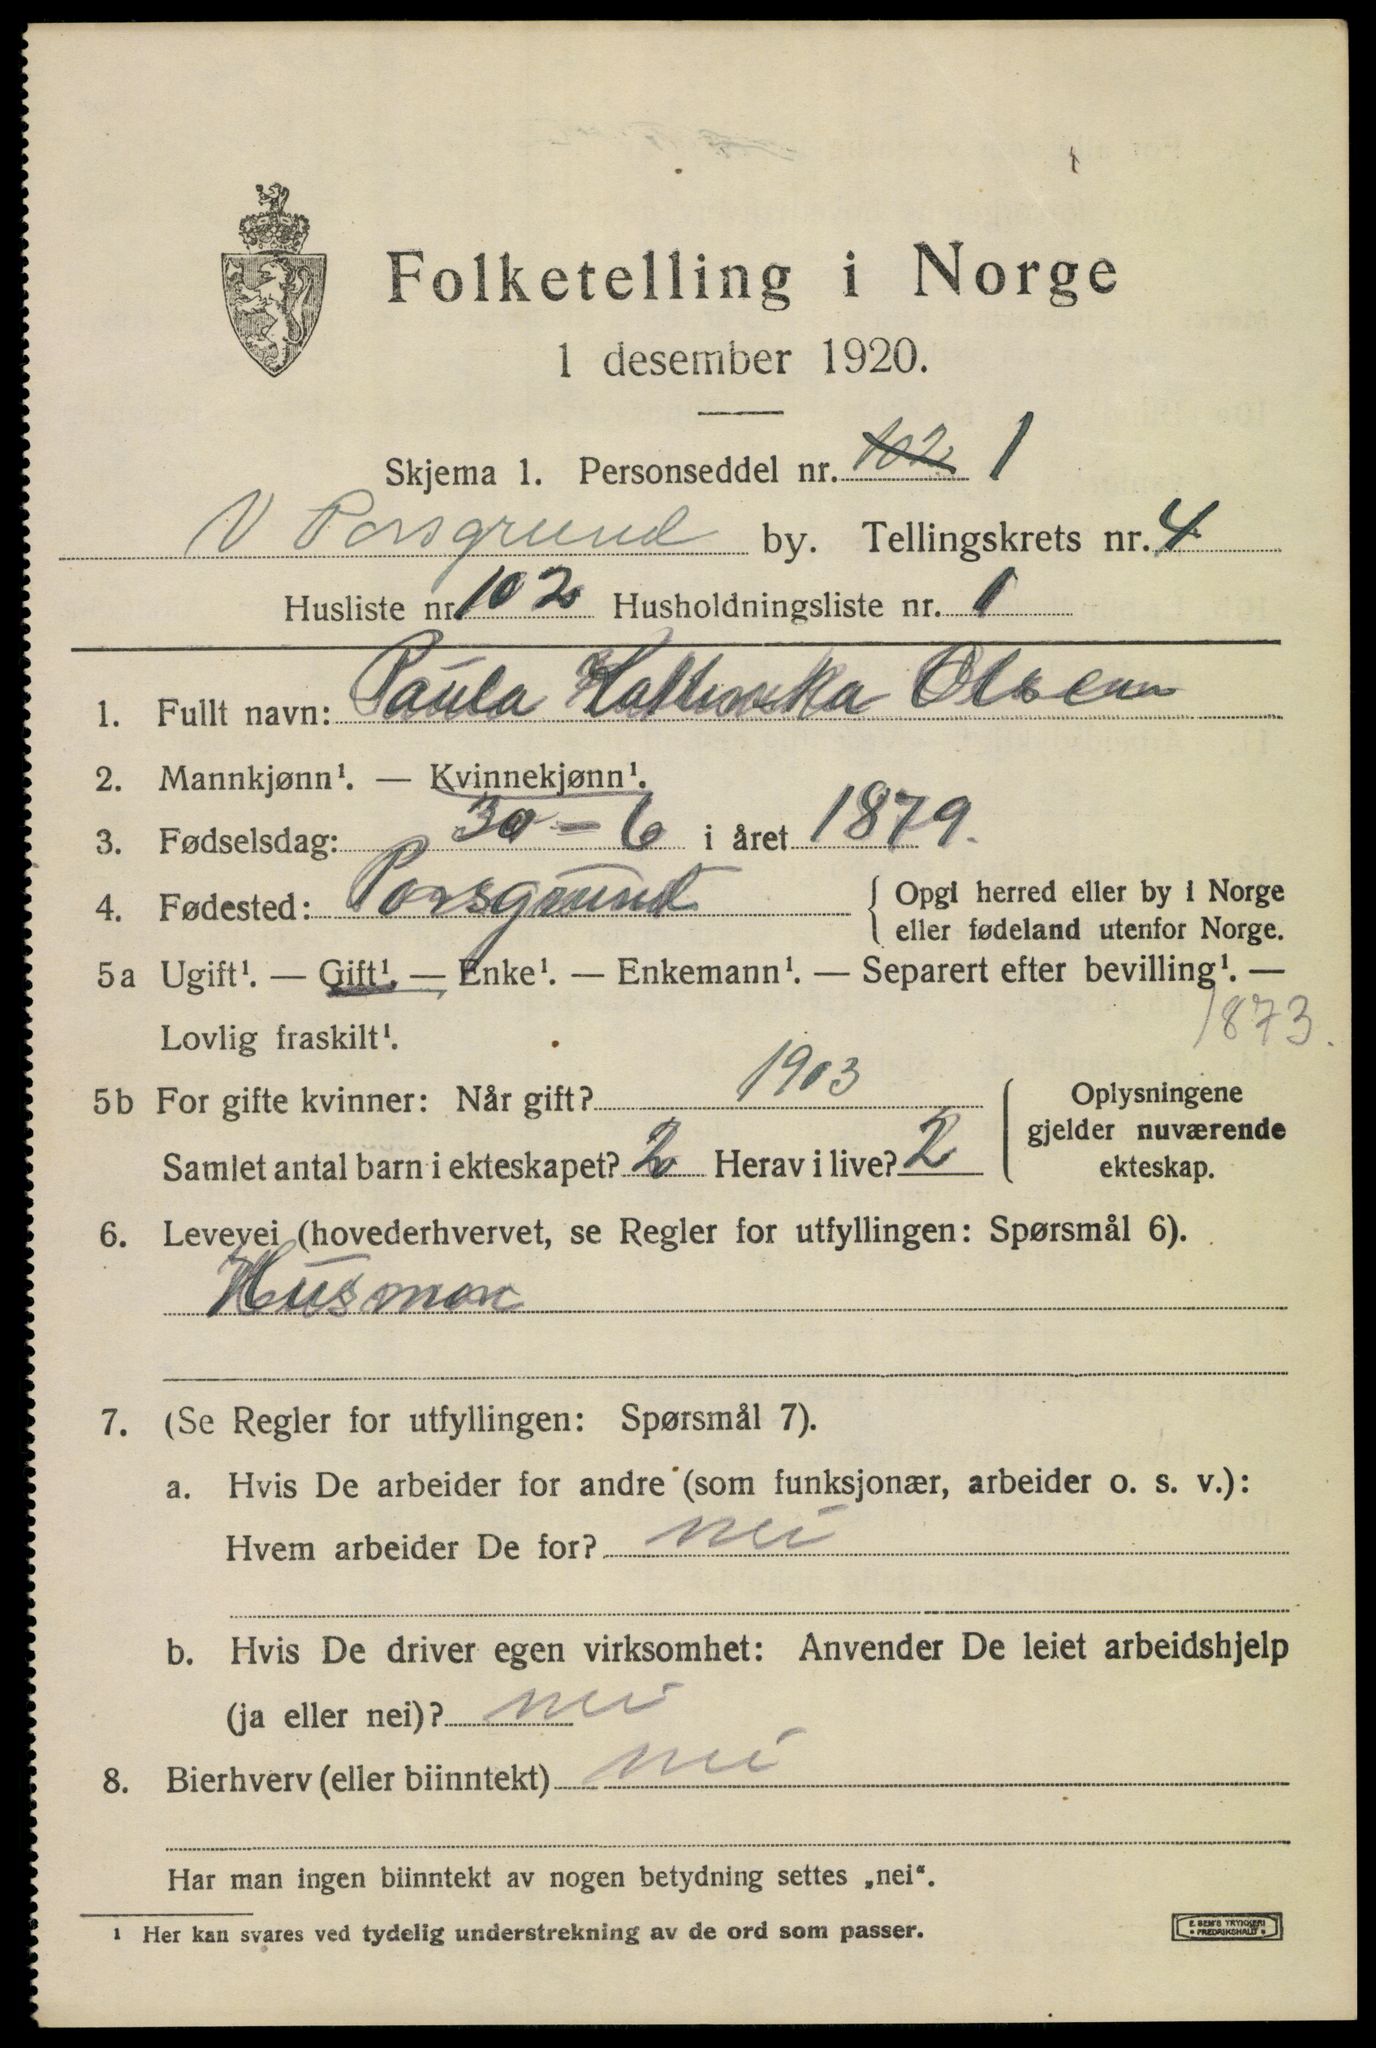 Folketelling i Norge
1 desember 1920.
Skjema 1. Personseddel nr. 102 1
V Porsgrund by. Tellingskrets nr. 4
Husliste nr. 102 Husholdningsliste nr. 1
1. Fullt navn: Paula Olsen
2. Mannkjønn¹. — Kvinnekjønn¹.
3. Fødselsdag: 30 – 6 i året 1879.
4. Fødested: Porsgrund { Opgi herred eller by i Norge
eller fødeland utenfor Norge.
5a Ugift¹. — Gift¹. — Enke¹. — Enkemann¹. — Separert efter bevilling¹. —
Lovlig fraskilt¹. 1873.
5b For gifte kvinner: Når gift? 1903
Samlet antal barn i ekteskapet? 2 Herav i live? 2
Oplysningene
gjelder nuværende
ekteskap.
6. Levevei (hovederhvervet, se Regler for utfyllingen: Spørsmål 6).
Husmor
7. (Se Regler for utfyllingen: Spørsmål 7).
a. Hvis De arbeider for andre (som funksjonær, arbeider o. s. v.):
Hvem arbeider De for? nei
b. Hvis De driver egen virksomhet: Anvender De leiet arbeidshjelp
(ja eller nei)? nei
8. Bierhverv (eller biinntekt) nei
Har man ingen biinntekt av nogen betydning settes „nei“.
¹ Her kan svares ved tydelig understrekning av de ord som passer.
E. SEM'S TRYKKERI
• FREDRIKSHALD •